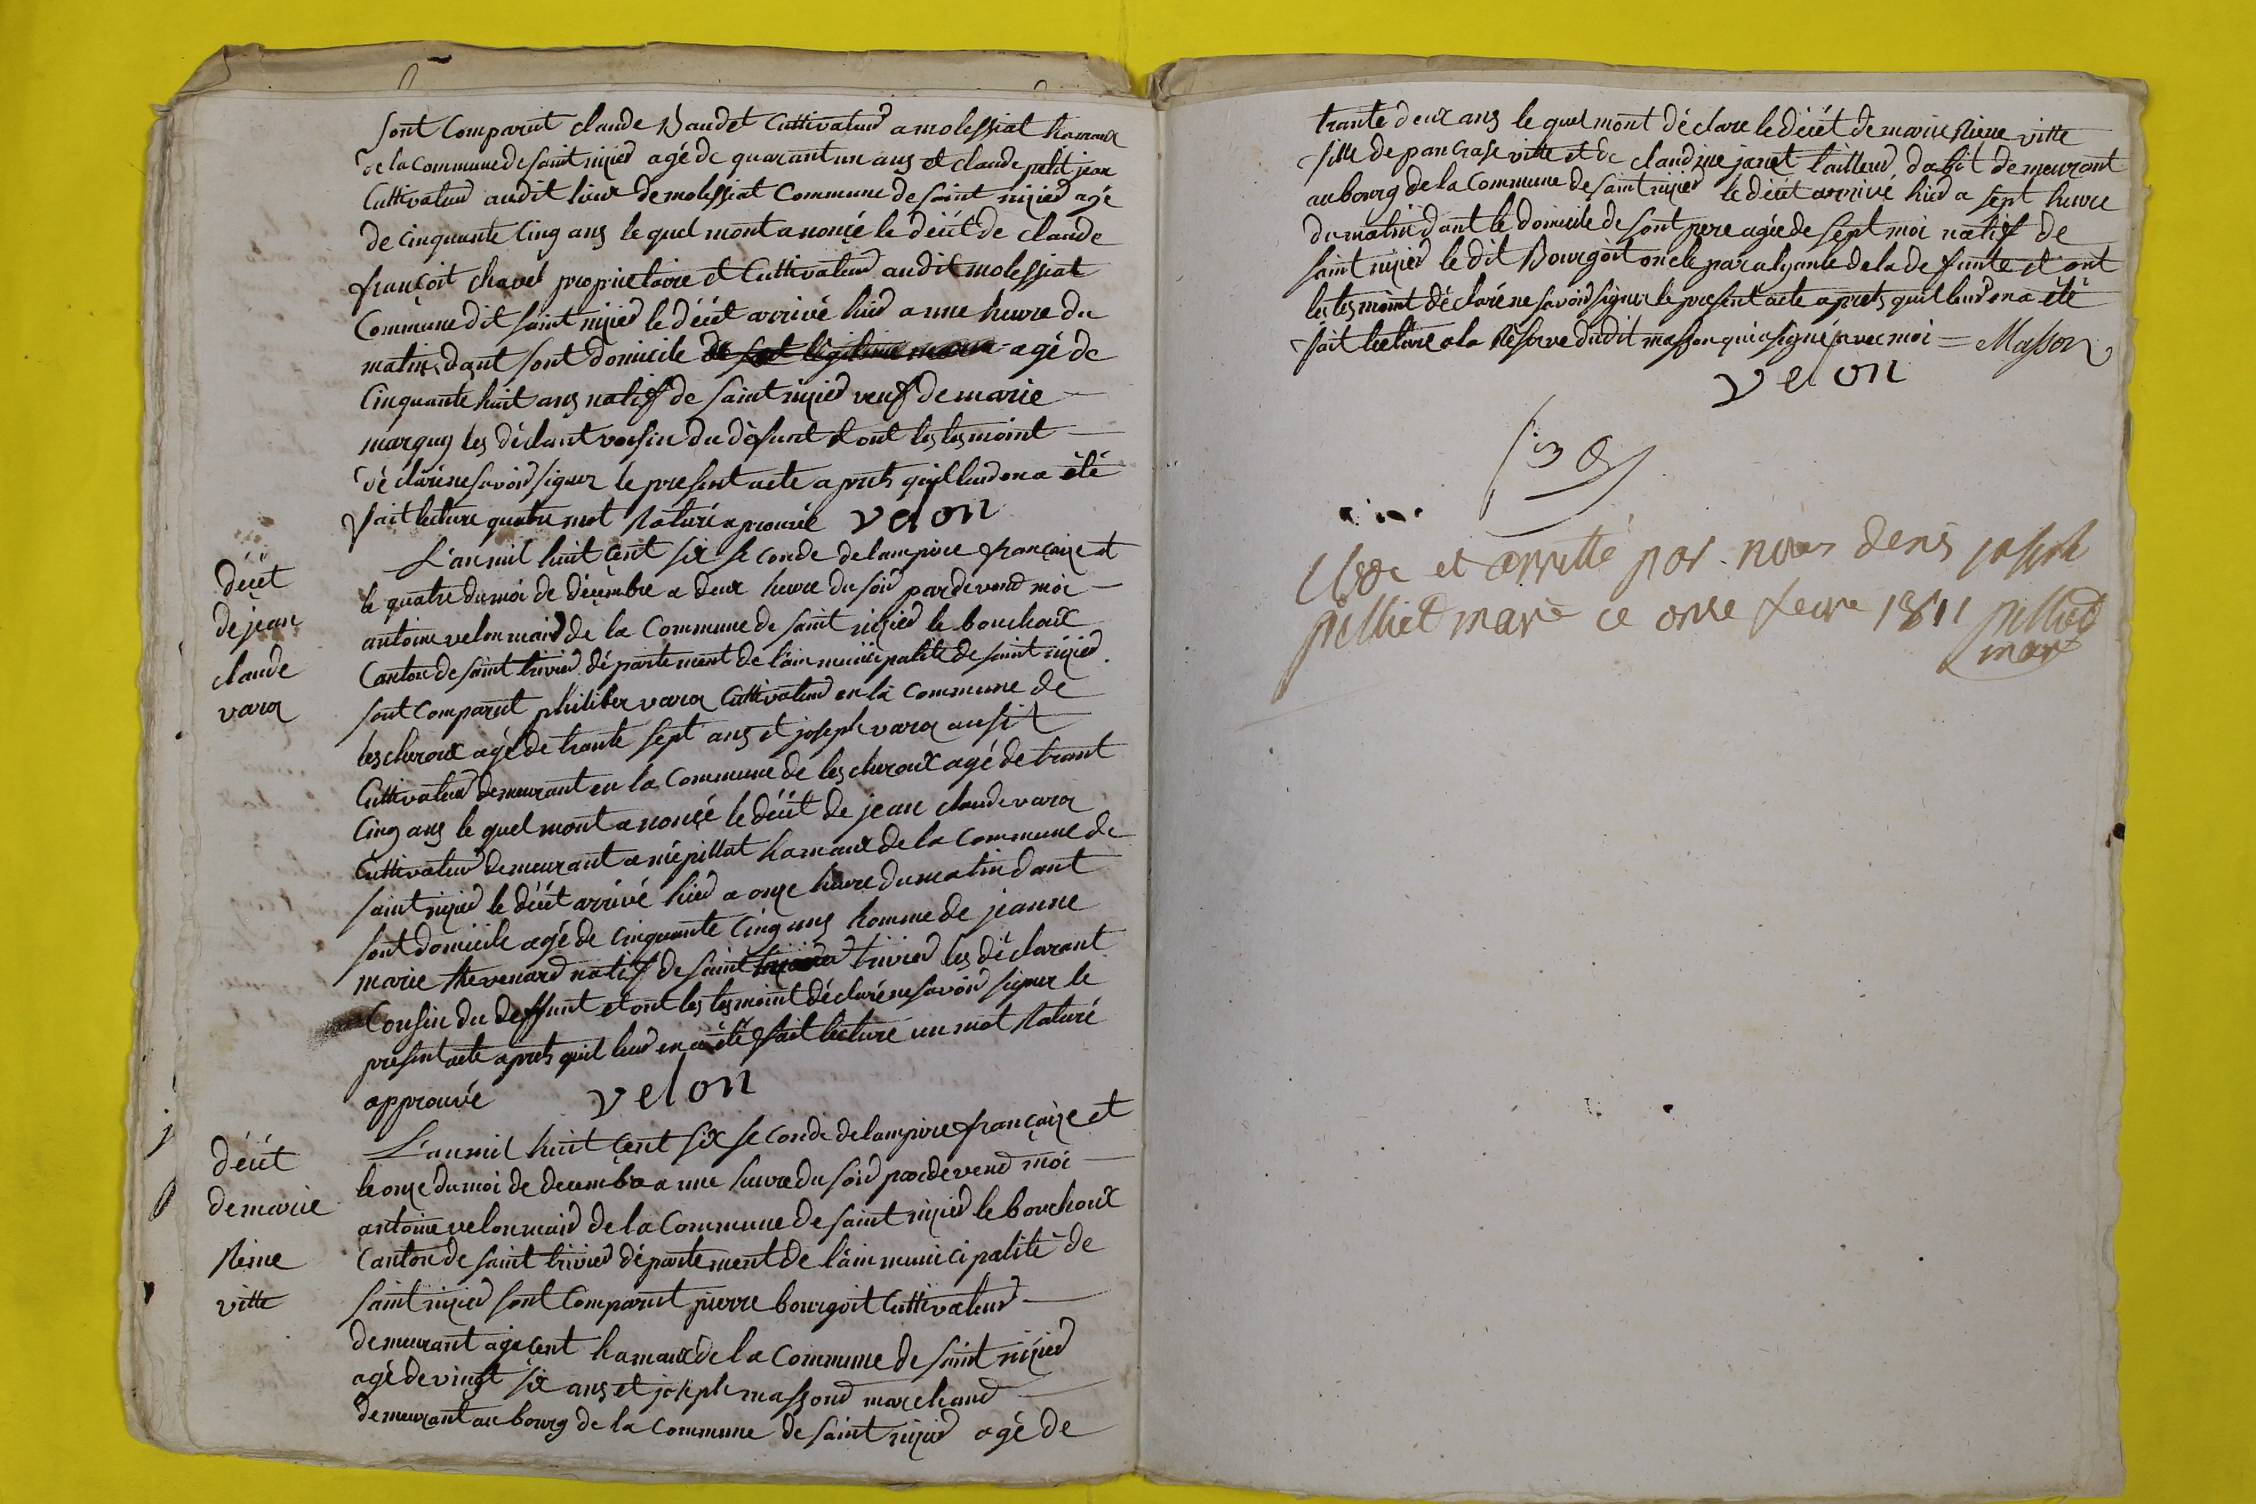 sont Comparut claude Baudet Cuttivateur a molessiat hamaux
de la Commune de saint nizier agé de quarant un ans et claude petit jean
Cuttivateur audit lieux de molessiat Commune de saint nizier agé
de cinquante Cinq ans le quel mont anonçé le déčét de claude
françoit chavet proprietaire et Cuttivateur audit molessiat
Commune dit saint nizier le déčét arrivé hier a une heure du
matin dant sont domicile agé de
Cinquante huit ans natif de saint nizier veuf de marie
marguy les déclant voisin du défunt et ont les tesmoint
déclaré ne savoir signer le present acte aprets quil leur en a été
fait lecture quatre mot raturé aprouvée velon
décét
de jean
claude
varoz
L'an mil huit cent six seconde de lampire françaize et
le quatre du moi de décembre a deux heure du soir pardevend moi
antoine velon mair de la Commune de saint nizier le bouchoux
Canton de saint trivier département de l'ain municipalité de saint nizier
sont Comparut philiber varoz Cuttivateur en la Commune de
lescheroux agé de trante sept ans et joseph varoz ausit
Cuttivateur demeurant en la Commune de lescheroux agé de trant
Cinq ans le quel mont anonçé le décét de jean claude varoz
Cuttivateur demeurant a mépillat hamaux de la Commune de
saint nizier le décét arrivé hier a onze heure du matin dant
sont domicile agé de cinquante Cinq ans homme de jeanne
marie thevenard natif de saint trivier les déclarant
Cousin du deffunt et ont les tesmoint déclaré ne savoir signer le
present acte aprets quil leur en a été fait lecture un mot raturé
approuvé velon
décét
de marie
Reine
vitte
L'an mil huit cent six seconde de lampire françaize et
le onze du moi de decembre a une heure du soir pardevend moi
antoine velon mair de la Commune de saint nizier le bouchoux
Canton de saint trivier département de l'ain municipalité de
saint nizier sont Comparut pierre bourgoit Cuttivateur
demeurant a jacent hamaux de la Commune de saint nizier
agé de vingt six ans et joseph massond marchand
demeurant au bourg de la Commune de saint nizier agé de
trante deux ans le quel mont déclare le décét de marie Reine vitte
fille de pancrase vitte et de claudine janet tailleur dabit demeurant
au bourg de la Commune de saint nizier le décét arrivé hier a sept heure
du matin dant le domicile de sont pere agée de sept moi natif de
saint nizier le dit Bourgoit oncle par alyante de la defunte et ont
les tesmoint déclaré ne savoir signer le present acte aprets quil leur en a été
fait lecture a la Réserve dudit masson qui a signé avec moi = Masson
velon
Clos et arretté par nous denis joseph
pelliet mare ce onse fevre 1811 pelliet
mare